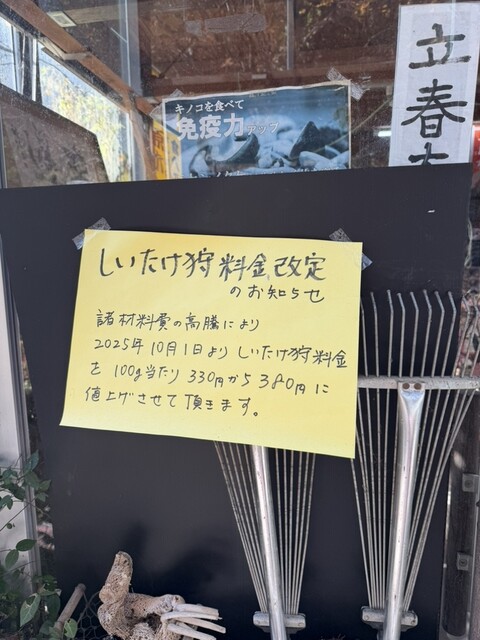 立春大
キノコを食べて
免疫力アップ
しいたけ狩料金改定
のお知らせ
諸材料費の高騰により
2025年10月1日よりしいたけ狩料金
を100g当たり330円から380円に
値上げさせて頂きます。